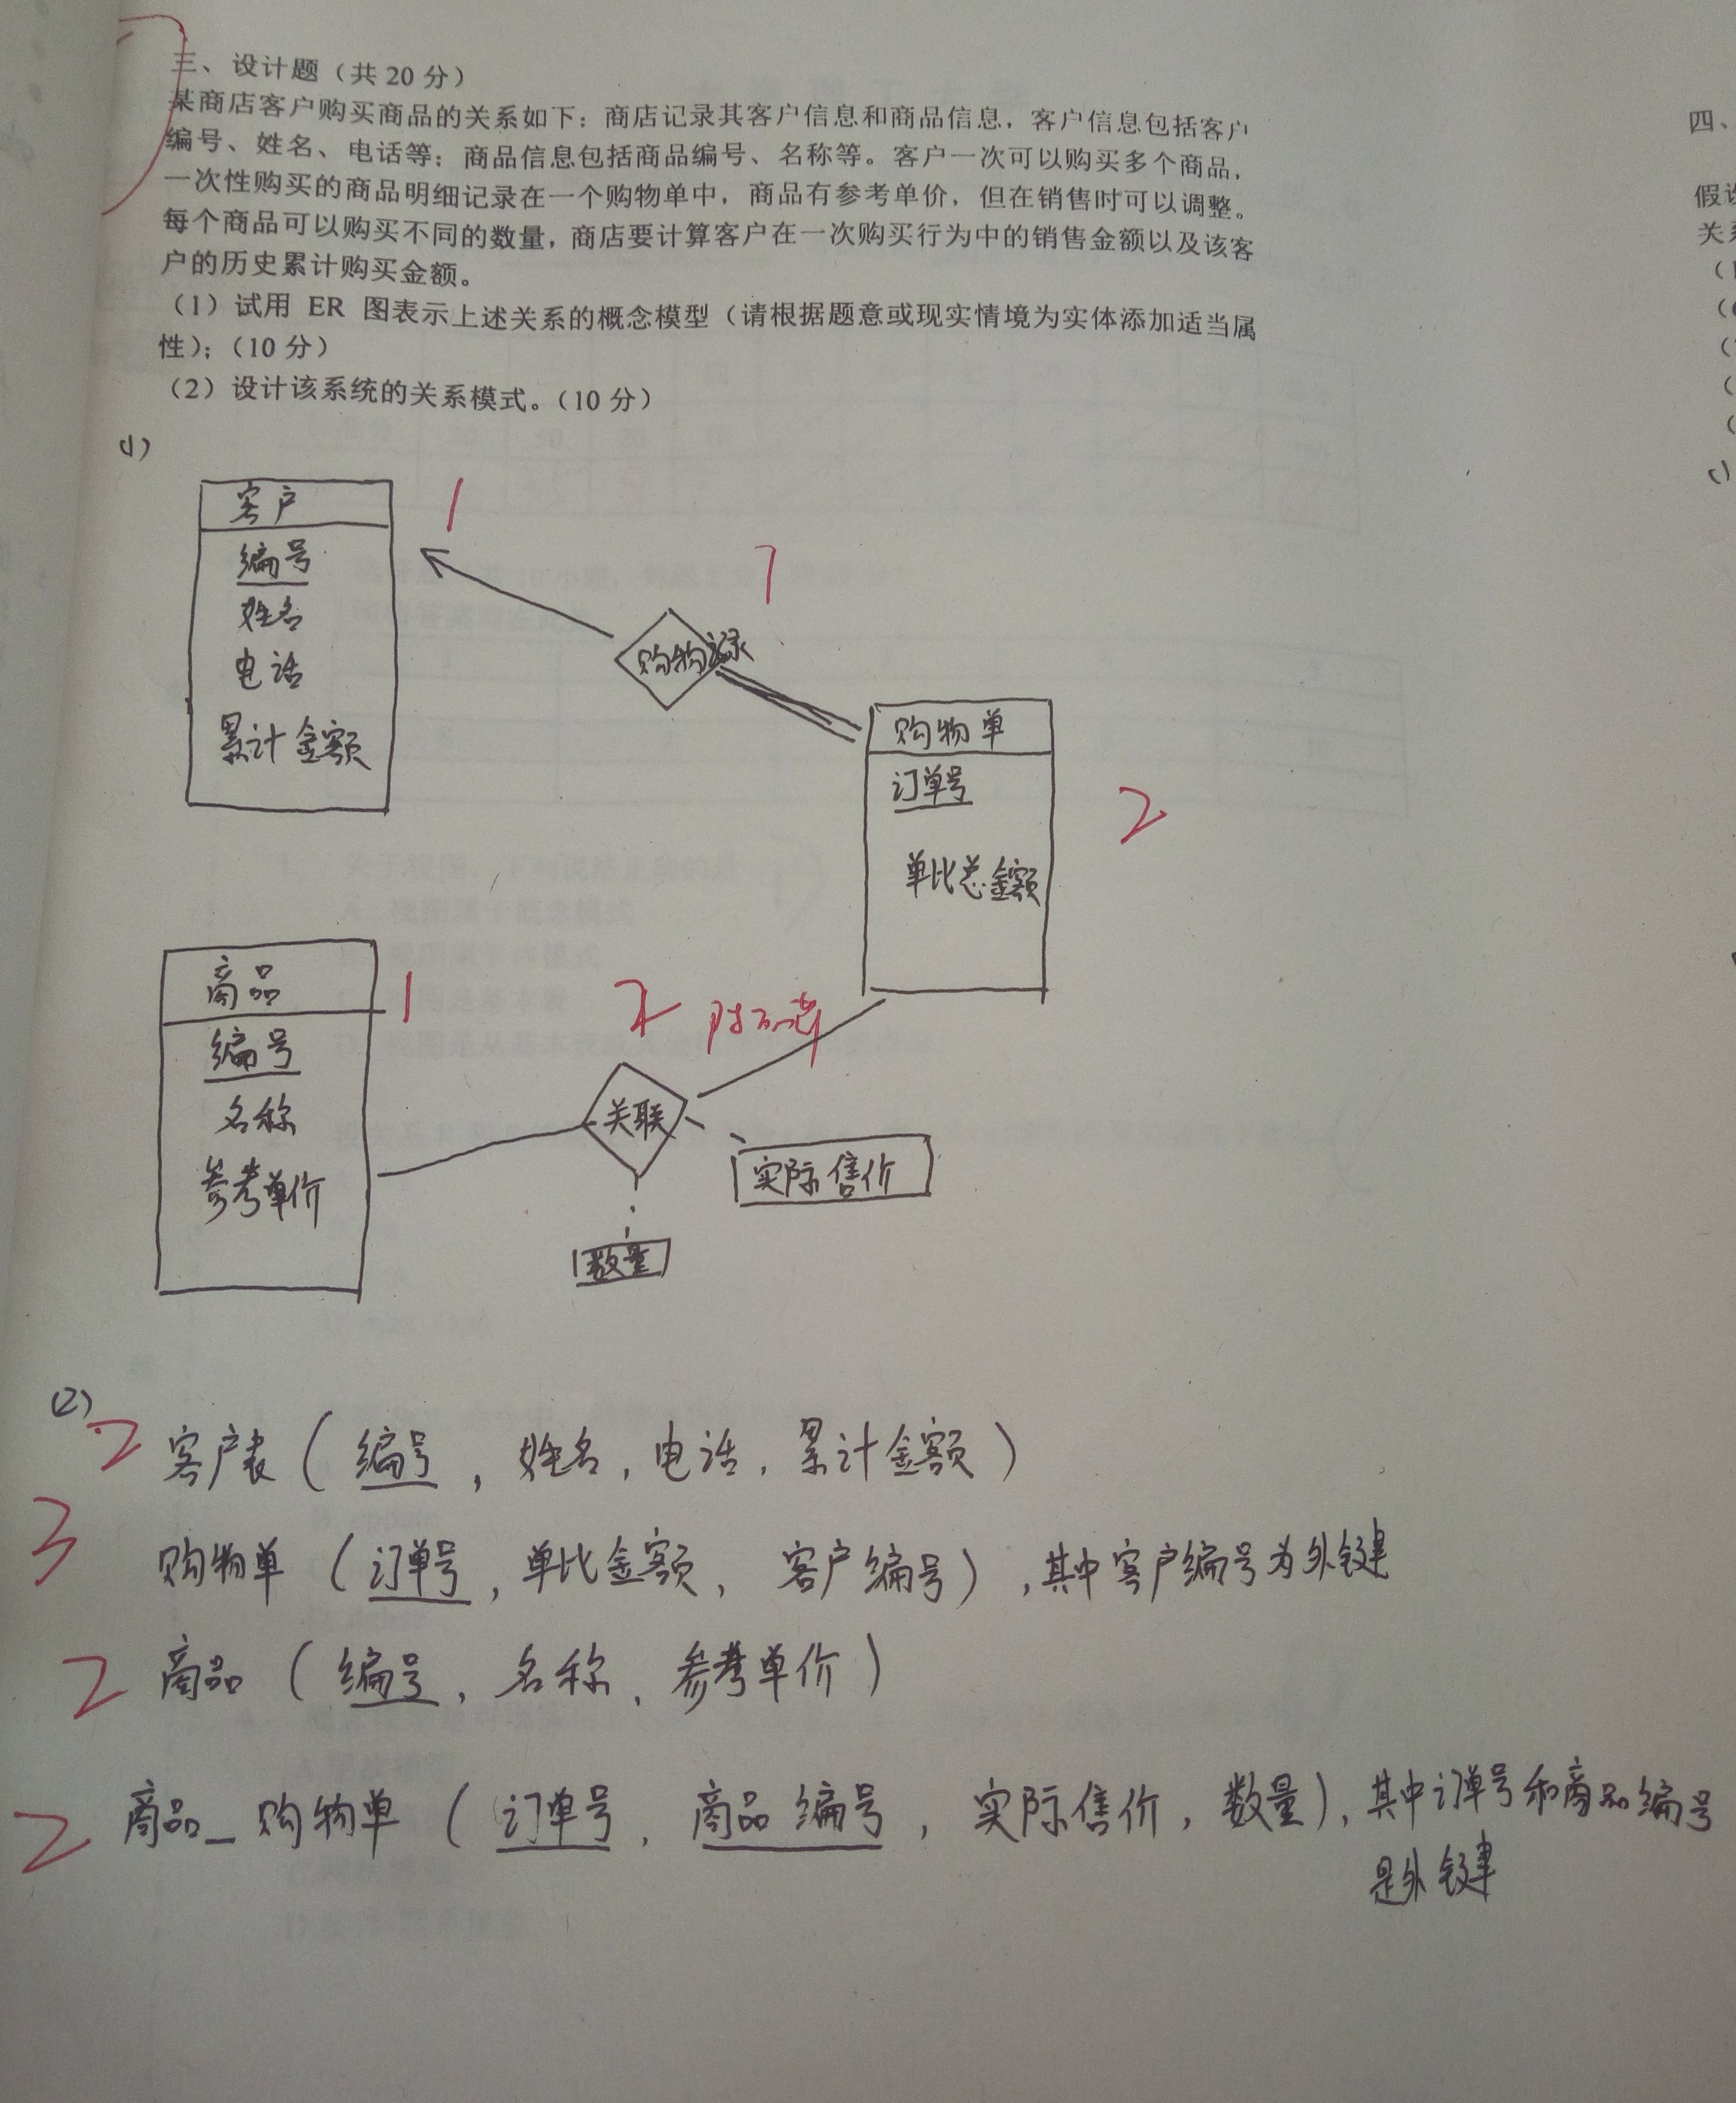 三、设计题（共 20 分）
某商店客户购买商品的关系如下：商店记录其客户信息和商品信息，客户信息包括客户
编号、姓名、电话等；商品信息包括商品编号、名称等。客户一次可以购买多个商品，
一次性购买的商品明细记录在一个购物单中，商品有参考单价，但在销售时可以调整。
每个商品可以购买不同的数量，商店要计算客户在一次购买行为中的销售金额以及该客
户的历史累计购买金额。
（1）试用 ER 图表示上述关系的概念模型（请根据题意或现实情境为实体添加适当属
性）；（10 分）
（2）设计该系统的关系模式。（10 分）
(1)
客户
编号
姓名
电话
累计金额
1
1
购物记录
购物单
订单号
单比总金额
2
商品
编号
名称
参考单价
1
2
关联
实际售价
数量
(2)
2 客户表（编号，姓名，电话，累计金额）
3 购物单（订单号，单比金额，客户编号），其中客户编号为外键
2 商品（编号，名称，参考单价）
2 商品_购物单（订单号，商品编号，实际售价，数量），其中订单号和商品编号
是外键
四、
假设
关系